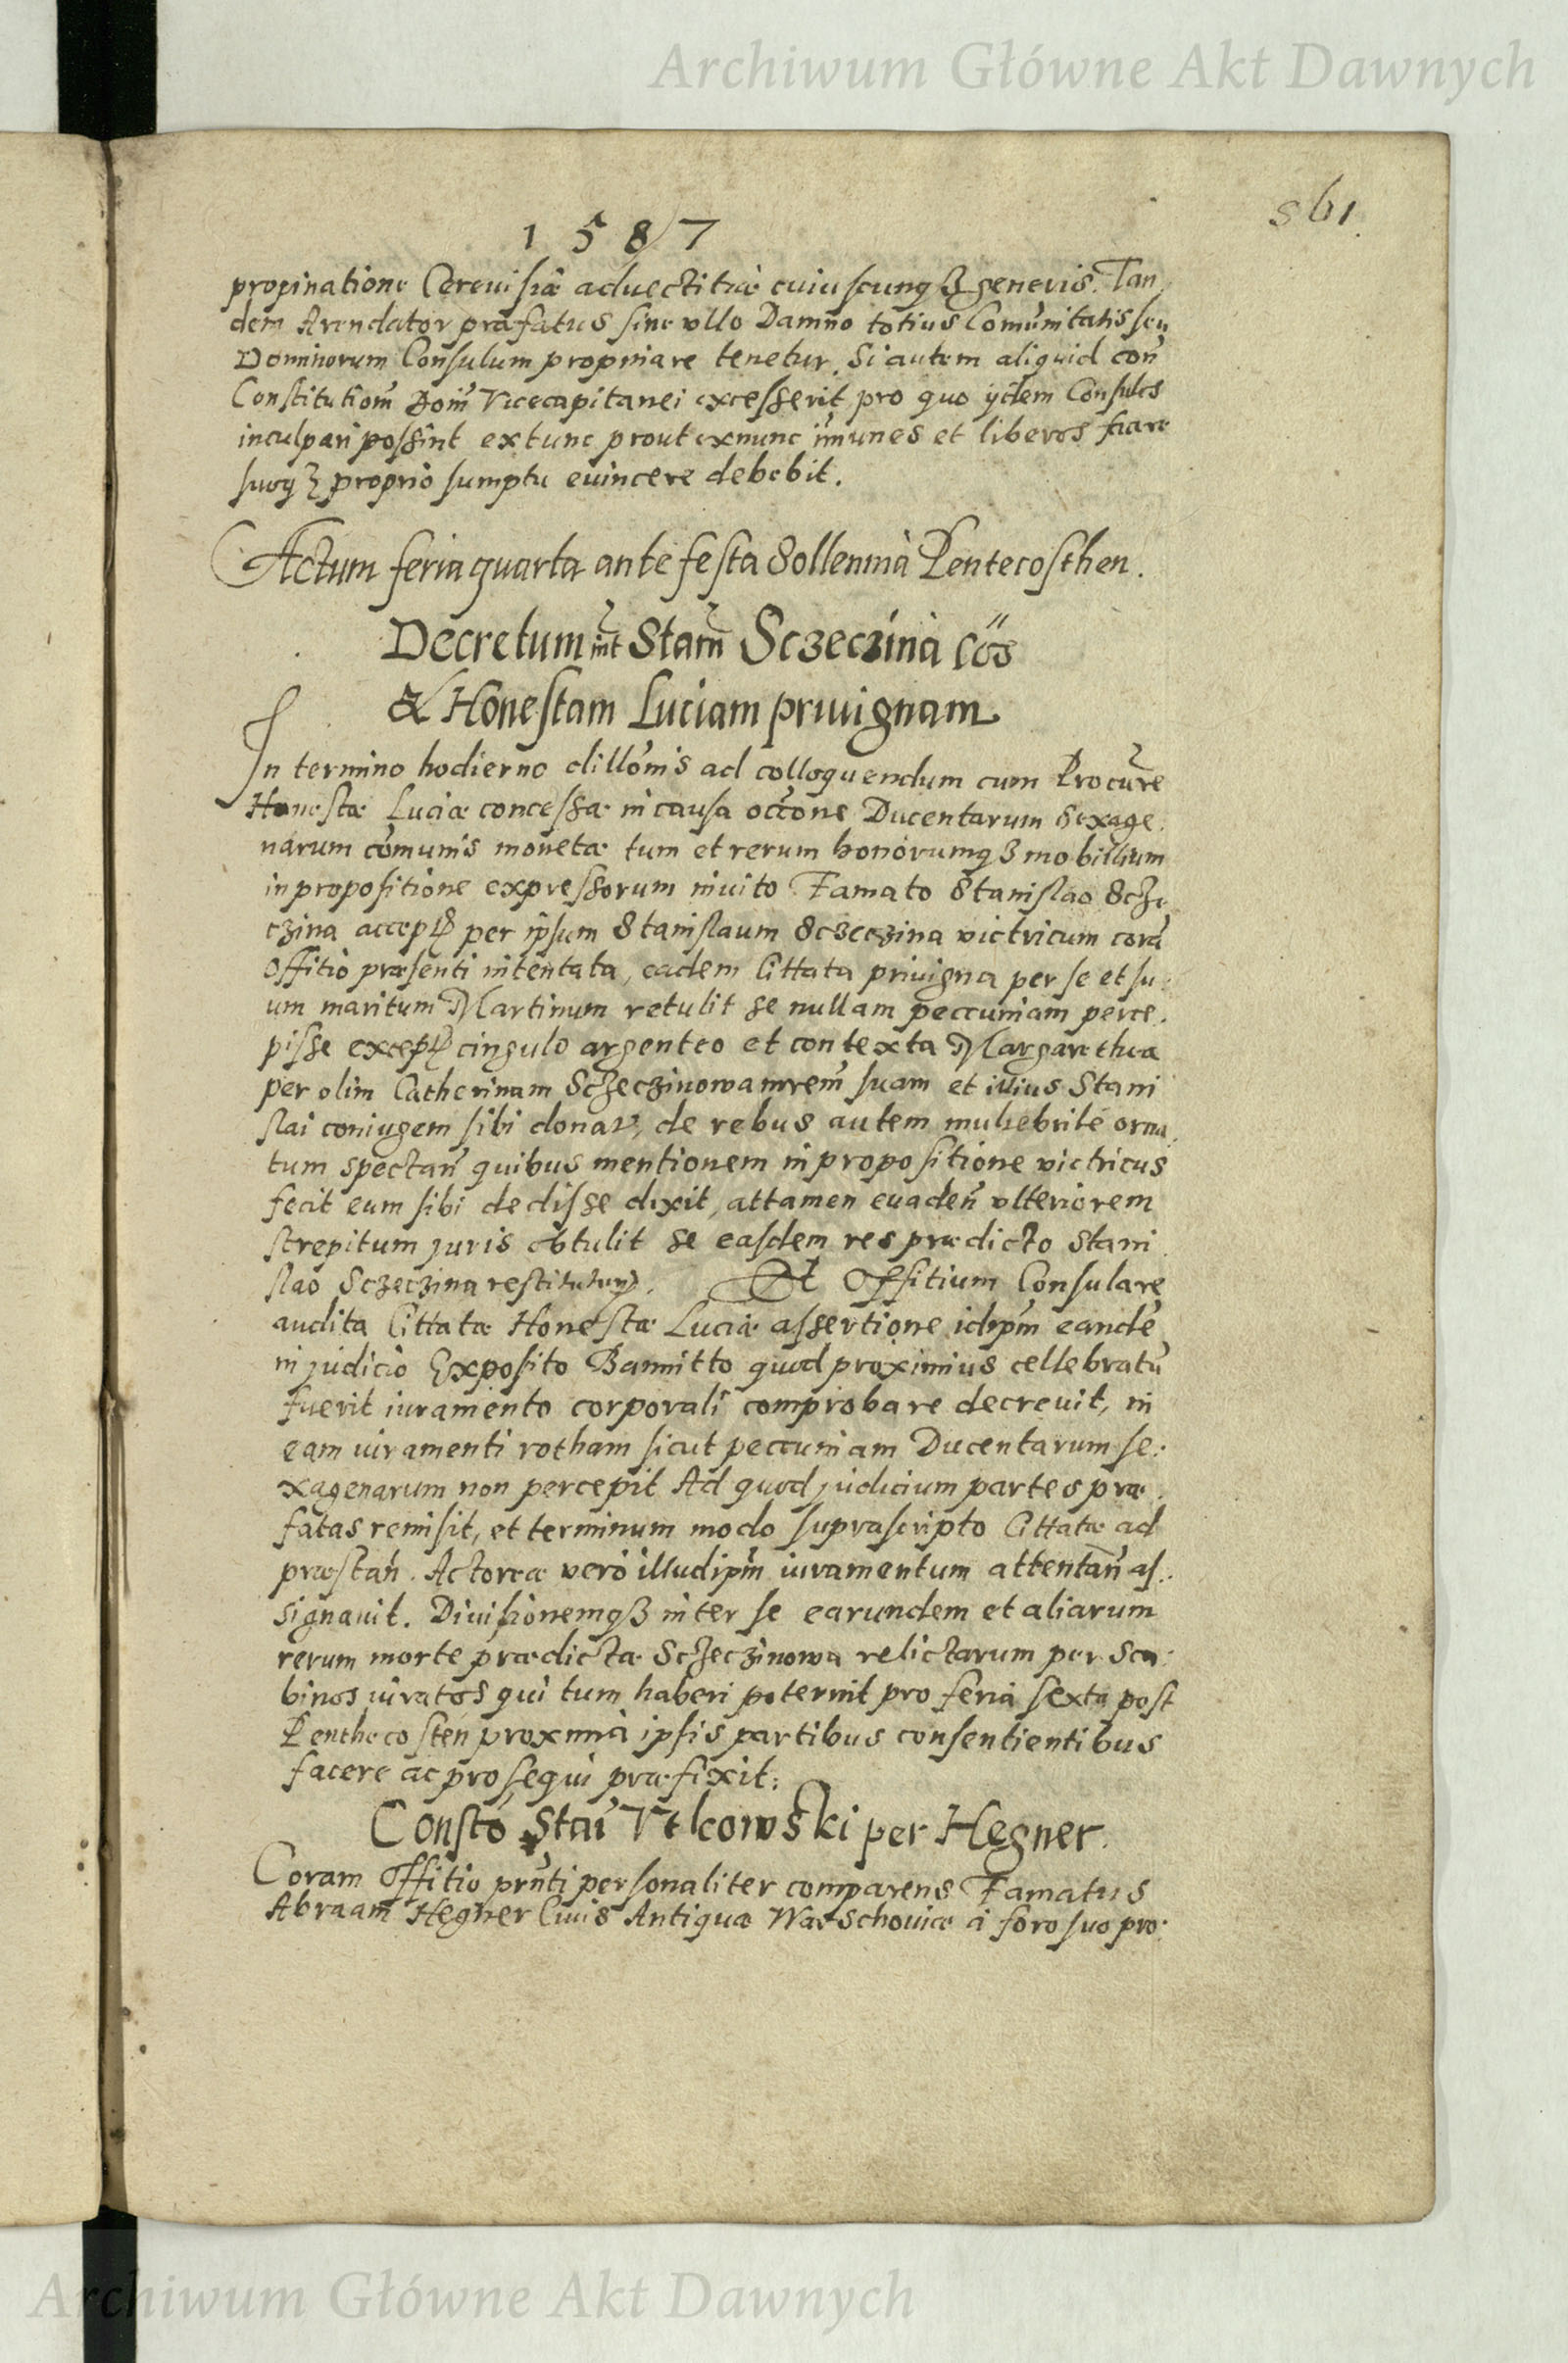 Archiwum Główne Akt Dawnych
561.
1587
propinatione Cerevisiæ advectitiæ cuiuscunqꝫ generis. Tan
dem Arendator præfatus sine ullo Damno totius Comunitatis seu
Dominorum Consulum propinare tenetur. Si autem aliquid con̄
Constitutiom̄ Dom̄ Vicecapitanei excesserit pro quo ijdem Consules
inculpari possint extunc prout exnunc im̄unes et liberos facere
suoqꝫ proprio sumptu evincere debebit.
Actum feria quarta ante festa Sollennia Pentecosthen.
Decretum int̄ Stam̄ Sczeczina Cōs
& Honestam Luciam privignam
In termino hodierno dillōnis ad colloquendum cum Procūre
Honestæ Luciæ concessæ in causa occōne Ducentarum Sexage.
narum com̄unis monetæ tum et rerum bonorumqꝫ mobilium
in propositione expressorum invito Famato Stanislao Scze
czina accep per ipsum Stanislaum Sczeczina victricum corā
Offitio præsenti intentata, eadem Cittata privigna per se et su:
um maritum Martinum retulit se nullam peccuniam perce.
pisse excep cingulo argenteo et contexta Margarethea
per olim Catherinam Sczeczinowa mrem̄ suam et illius Stani
slai coniugem sibi dona, de rebus autem muliebrilē orna.
tum spectan̄ quibus mentionem in propositione victricus
fecit eum sibi dedisse dixit, attamen evaden̄ ulteriorem
strepitum juris obtulit se easdem res prædicto Stani
slao Sczeczina restitutur. Et Offitium Consulare
audita Cittatæ Honestæ Luciæ assertione idipm̄ eandē
in judicio Exposito Bannitto quod proximius cellebratū
fuerit iuramento corporali comprobare decrevit, in
eam iuramenti rotham sicut peccuniam Ducentarum se:
xagenarum non percepit Ad quod judicium partes præ.
fatas remisit, et terminum modo suprascripto Cittatæ ad
præstan̄. Actoreæ vero illudipm̄ iuramentum attentan̄ as.:
signavit. Divisionemqꝫ inter se earundem et aliarum
rerum morte prædictæ Sczeczinowa relictarum per Sca:
binos iuratos qui tum haberi poterint pro feria sexta post
Penthecosten proxima ipsis partibus consentientibus
facere ac prosequi præfixit:
Constō Stai Vtkowski per Hegner.
Coram Offitio prn̄ti personaliter comparens Famatus
Abraam Hegner Civis Antiquæ Warschoviæ a foro suo pro:
Archiwum Główne Akt Dawnych